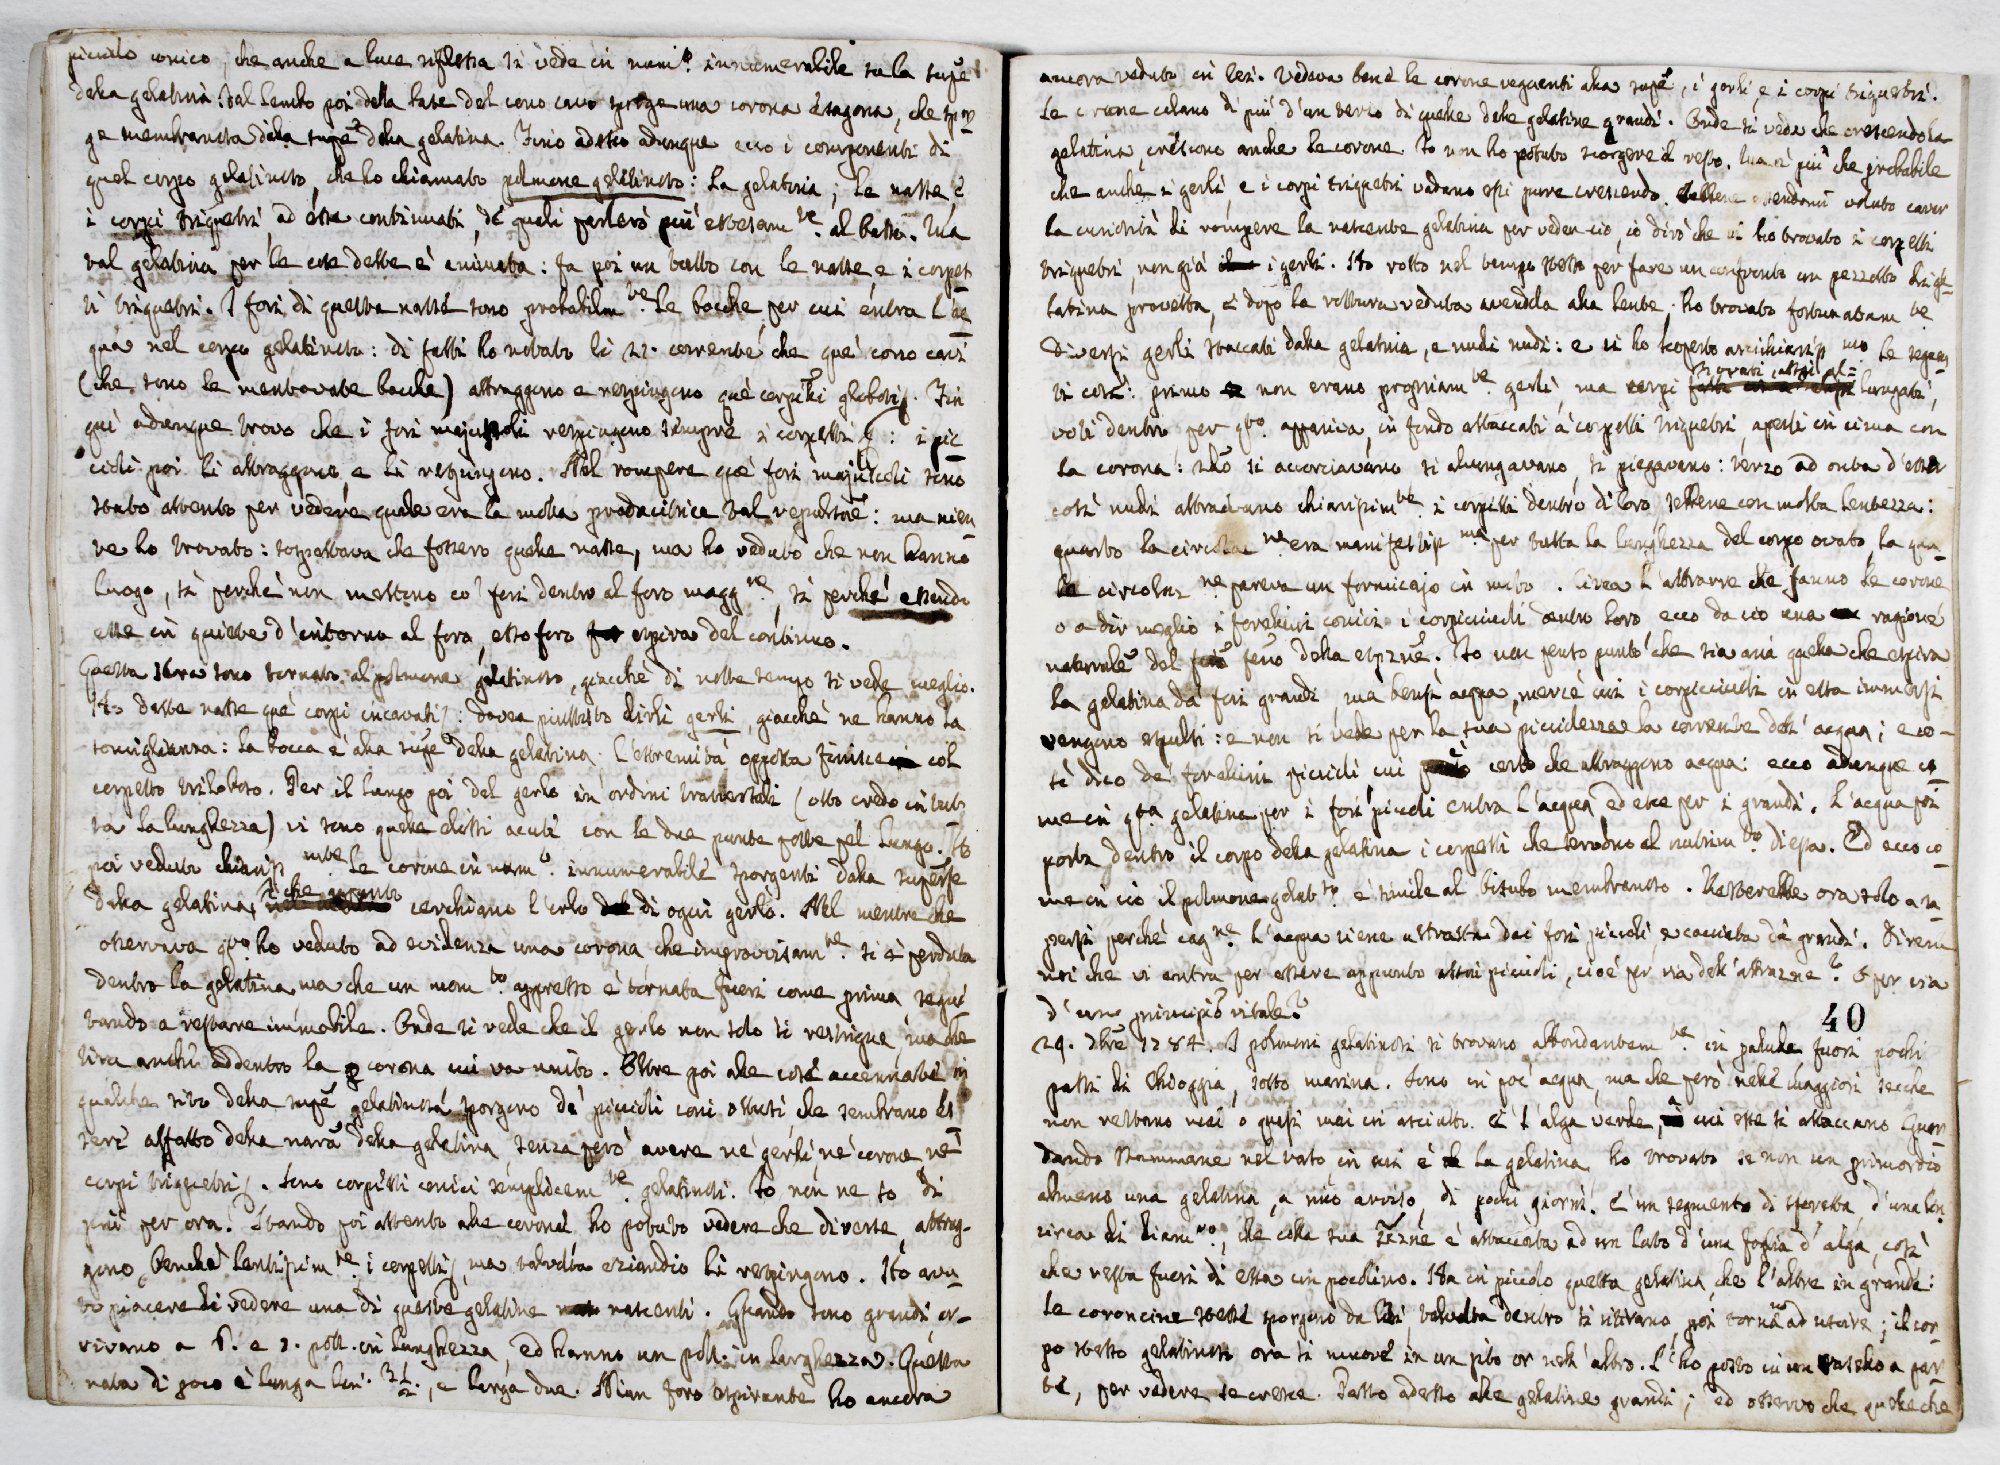 picciolo conico, che anche a luce riflessa si vede in num.º innumerabile su la supe
della gelatina. Dal lembo poi della base del cono cavo sporge una corona esagona, che spor
ge membranosa dalla supe della gelatina. Fino adesso adunque ecco i componenti di
quel corpo gelatinoso, che ho chiamato polmone gelatinoso: la gelatina; le nasse e
i corpi triquetri ad esse continuati, de' quali parlerò più estesam.te al basso. Una
tal gelatina per le cose dette è animata: fa poi un tutto con le nasse, e i corpet
ti triquetri. I fori di queste nasse sono probabilm.te le bocche, per cui entra l'ac
qua nel corpo gelatinoso: di fatti ho notato li 21. corrente che que' corpi cavi
(che sono le mentovate bocche) attraggono e respingono que' corpicelli globosi. Fin
qui adunque trovo che i fori majuscoli respingono sempre i corpetti: i pic
cioli poi li attraggono e li respingono. Nel rompere que' fori majuscoli sono
stato attento per vedere quale era la molla produttrice tal repulsione: ma nien
te ho trovato: sospettava che fossero quelle nasse, ma ho veduto che non hanno
luogo, sì perchè non mettono co' fori dentro al foro magg.re, sì perchè essendo
esse in quiete d'intorno al foro, esso foro espira del continuo.
Questa sera sono tornato al polmone gelatinoso, giacchè di notte tempo si vede meglio.
Ho dette nasse que' corpi incavati: dovea piuttosto dirli gerli, giacchè ne hanno la
somiglianza: la bocca è alla supe della gelatina. L'estremità opposta finisce col
corpetto trilobato. Per il lungo poi del gerlo in ordini trasversali (otto credo in tut
ta la lunghezza) vi sono quelle elissi acute con le due punte poste pel lungo. Ho
poi veduto chiariss.mte le corone in num.º innumerabile sporgenti dalla superfe
della gelatina, si che appunto cerchiano l'orlo di ogni gerlo. Nel mentre che
osservava q.to ho veduto ad evidenza una corona che improvvisam.te si è perduta
dentro la gelatina ma che un mom.to appresso è tornata fuori come prima segui
tando a restare immobile. Onde si vede che il gerlo non solo si restringe, ma che
tira anche addentro la corona cui va unito. Oltre poi alle cose accennate in
qualche sito della supe gelatinosa sporgono de' piccioli coni ottusi, che sembrano es
sere affatto della natura della gelatina, senza però avere nè gerli, nè corone nè
corpi triquetri. Sono corpetti conici semplicem.te gelatinosi. Io non ne so di
più per ora. Stando poi attento alle corone ho potuto vedere che diverse attrag-
gono, benchè lentissim.te i corpetti, ma talvolta eziandio li respingono. Ho avu
to piacere di vedere una di queste gelatine nascenti. Quando sono grandi ar-
rivano a 6. e 7. poll. in lunghezza, ed hanno un poll. in larghezza. Questa
nata di poco è lunga lin. 3½, e larga due. Niun foro espirante ho ancora
ancora veduto in lei. Vedeva bene le corone vegnenti alla supe, i gerli, e i corpi triquetri.
Le corone calano di più d'un terzo di quelle delle gelatine grandi. Onde si vede che crescendo la
gelatina, crescono anche le corone. Io non ho potuto scorgere il resto. Ma è più che probabile
che anche i gerli, e i corpi triquetri vadano essi pure crescendo. voluto cavar
la curiosità di rompere la nascente gelatina per veder ciò, io dirò che vi ho trovato i corpetti
triquetri, non già i gerli. Ho rotto nel tempo stesso per fare un confronto un pezzetto di ge-
latina provetta, e dopo la rottura veduta avendola alla lente, ho trovato fortunatam.te
diversi gerli staccati dalla gelatina, e nudi nudi: e vi ho scoperto arcichiariss.mo le seguen
ti cose: primo non erano propriam.te gerli, ma corpi ovati, assai al= lungati,
voti dentro per q.to appariva, in fondo attaccati a' corpetti triquetri, aperti in cima con
la corona: 2do si accorciavano si allungavano, si piegavano: terzo ad onta d'esser
così nudi attraevano chiarissim.te i corpetti dentro di loro sebbene con molta lentezza:
quarto la circolaz.ne era manifestiss.ma per tutta la lunghezza del corpo ovato, la qua-
le circolaz.ne pareva un formicajo in moto. Circa l'attrarre che fanno le corone
o a dir meglio i forellini conici i corpiccioli dentro loro ecco da ciò una ragione
naturale del feno della espizne. Io non penso punto che sia aria quella che espira
la gelatina da' fori grandi, ma bensì acqua, mercè cui i corpiccioli in essa immersi
vengono espulsi: e non si vede per la sua picciolezza la corrente dell'acqua; e co-
sì dico de' forellini piccioli cui è certo che attraggono acqua: ecco adunque co-
me in q.ta gelatina per i fori piccoli entra l'acqua, ed esce per i grandi. L'acqua poi
porta dentro il corpo della gelatina i corpetti che servono al nutrim.to di essa. Ed ecco co-
me in ciò il polmone gelat.so è simile al bitubo membranoso. Resterebbe ora solo a sa-
persi perchè cag.ne l'acqua viene attratta dai fori piccoli e cacciata da' grandi. Direm
noi che vi entra per essere appunto assai piccioli, cioè per via dell'attrazne? O per via
d'uno principio vitale?
40
29. 7bre 1784. I polmoni gelatinosi si trovano abbondantem.te in palude fuori pochi
passi di Chioggia, sotto marina. Sono in poc'acqua, ma che però nelle maggiori secche
non restano mai o quasi mai in asciutto. È l'alga verde, a cui esse si attaccano. Guar
dando stammane nel vaso in cui è la gelatina ho trovato se non un primordio
almeno una gelatina, a mio avviso, di pochi giorni. È un segmento di sferetta d'una lin.
circa di diam.tro, che colla sua sezne è attaccata ad un lato d'una foglia d'alga, così
che resta fuori di essa un pocolino. Ha in piccolo questa gelatina, che l'altre in grande:
le coroncine stesse sporgono da lei, talvolta dentro si ritirano, poi tornano ad uscire; il cor-
po stesso gelatinoso ora si muove in un sito or nell'altro. L'ho posto in un vasello a par
te, per vedere se cresce. Passo adesso alle gelatine grandi; ed osservo che quelle che